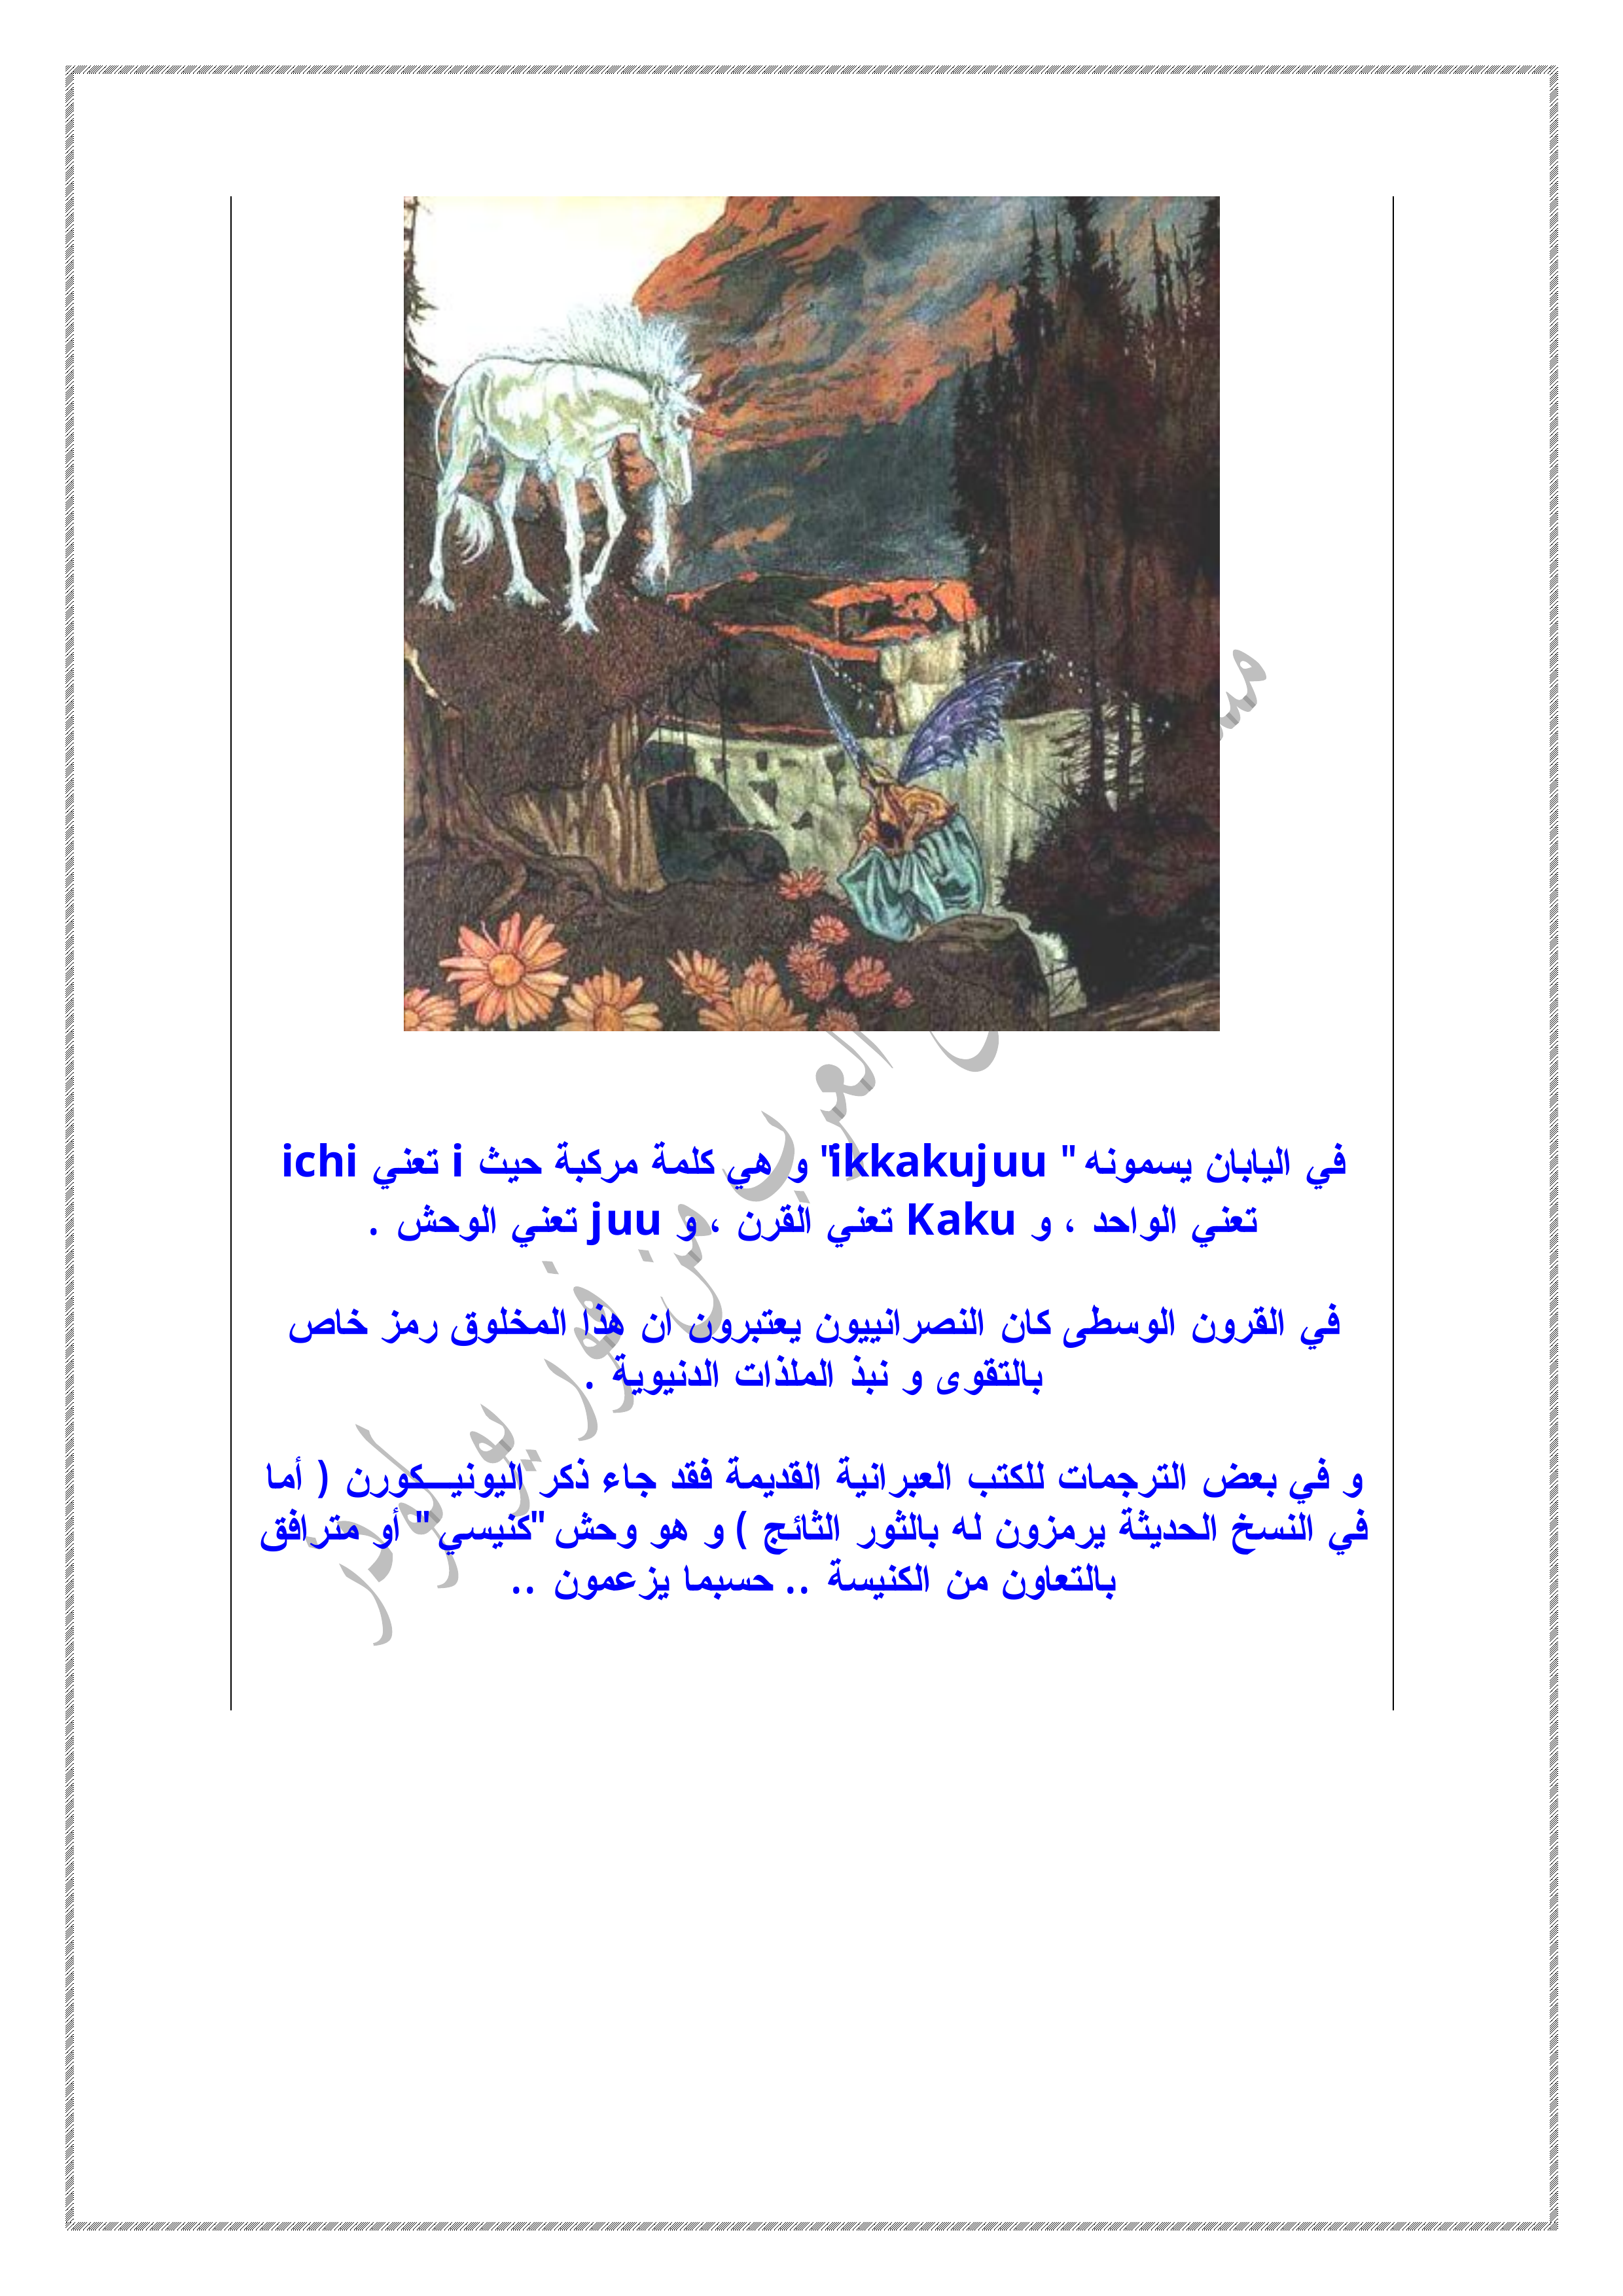 في اليابان يسمونه " ikkakujuu" و هي كلمة مركبة حيث i تعني ichi
تعني الواحد ، و Kaku تعني القرن ، و juu تعني الوحش .
في القرون الوسطى كان النصرانييون يعتبرون ان هذا المخلوق رمز خاص
بالتقوى و نبذ الملذات الدنيوية .
و في بعض الترجمات للكتب العبرانية القديمة فقد جاء ذكر اليونيـــكورن ( أما
في النسخ الحديثة يرمزون له بالثور الثائج ) و هو وحش "كنيسي" أو مترافق
بالتعاون من الكنيسة .. حسبما يزعمون ..
العرب من فور يو لودر